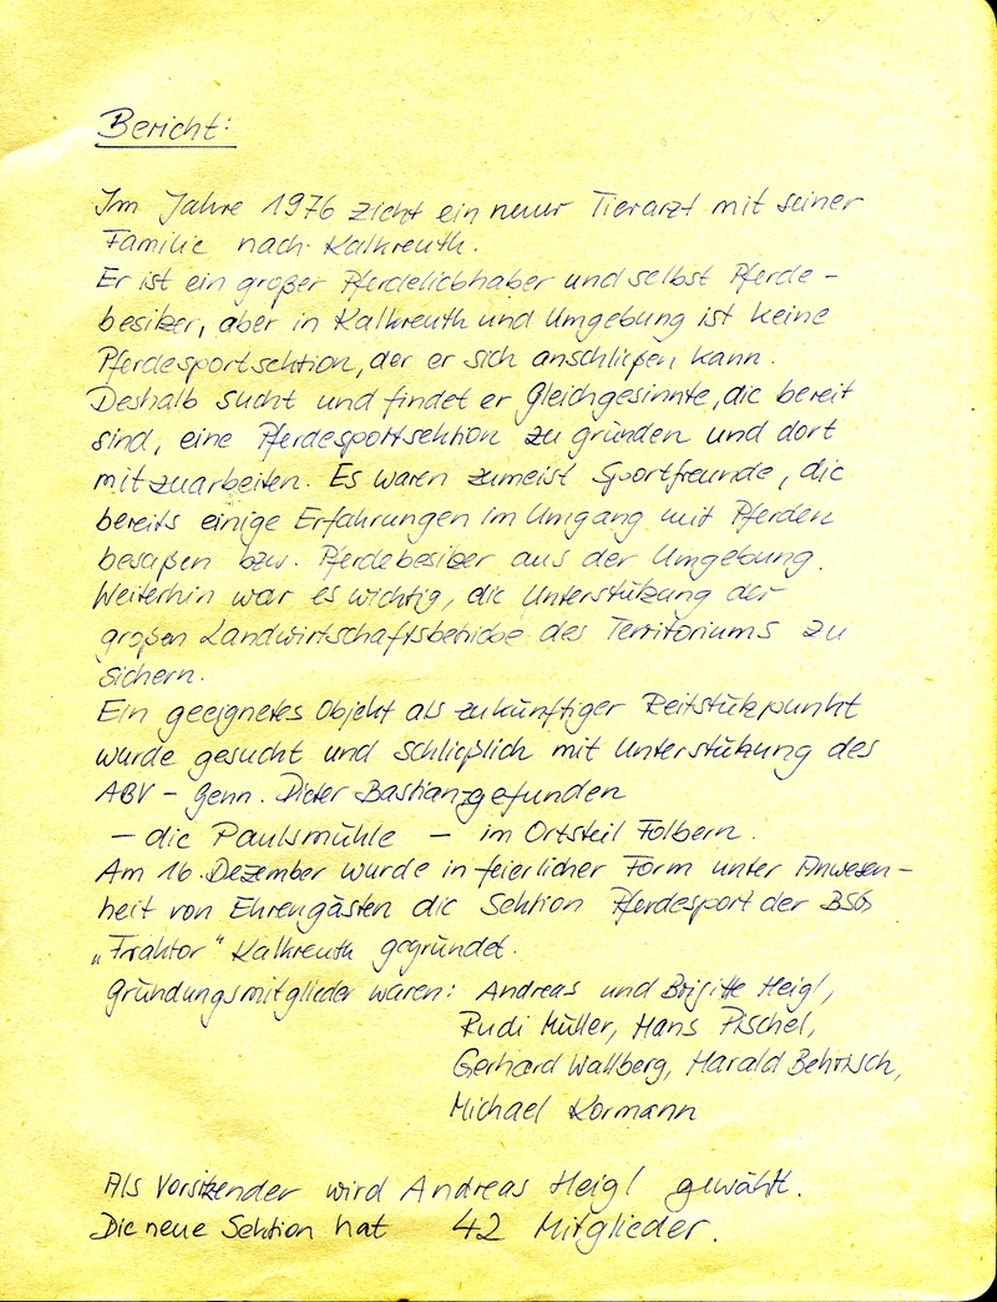 Bericht:
Im Jahre 1976 zieht ein neuer Tierarzt mit seiner
Familie nach Kalkreuth.
Er ist ein großer Pferdeliebhaber und selbst Pferde-
besitzer, aber in Kalkreuth und Umgebung ist keine
Pferdesportsektion, der er sich anschließen kann.
Deshalb sucht und findet er Gleichgesinnte, die bereit
sind, eine Pferdesportsektion zu gründen und dort
mitzuarbeiten. Es waren zumeist Sportfreunde, die
bereits einige Erfahrungen im Umgang mit Pferden
besaßen bzw. Pferdebesitzer aus der Umgebung.
Weiterhin war es wichtig, die Unterstützung der
großen Landwirtschaftsbetriebe des Territoriums zu
sichern.
Ein geeignetes Objekt als zukünftiger Reitstützpunkt
wurde gesucht und schließlich mit Unterstützung des
ABV - Genn. Dieter Bastian gefunden
- die Paulsmühle - im Ortsteil Folbern.
Am 16. Dezember wurde in feierlicher Form unter Anwesen-
heit von Ehrengästen die Sektion Pferdesport der BSG
„Traktor" Kalkreuth gegründet.
Gründungsmitglieder waren: Andreas und Brigitte Heigl,
Rudi Müller, Hans Pischel,
Gerhard Wallberg, Harald Behrisch,
Michael Kormann
Als Vorsitzender wird Andreas Heigl gewählt.
Die neue Sektion hat 42 Mitglieder.